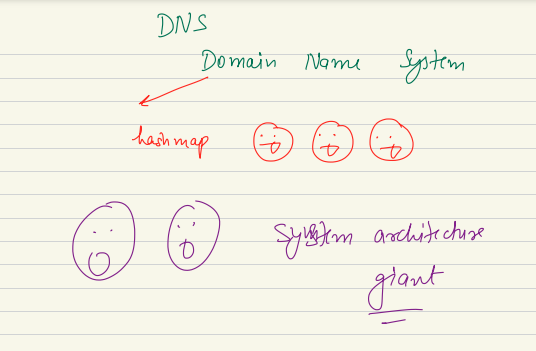 DNS
Domain Name System
hashmap
System architecture
giant